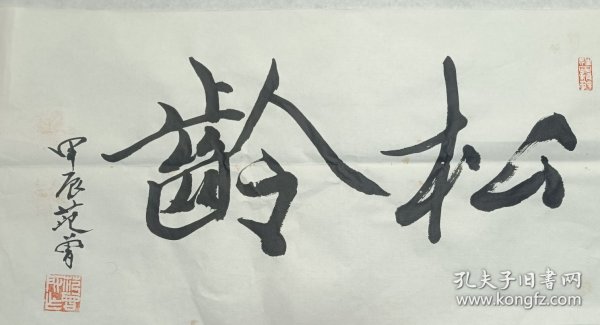 松齡
甲辰范曾
孔夫子旧书网
www.kongfz.com